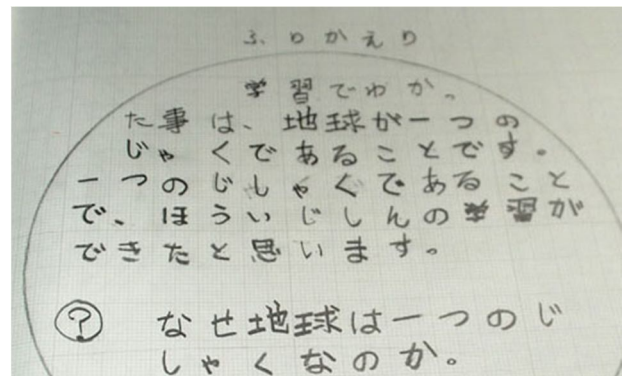 ふりかえり
学習でわかっ
た事は、地球が一つの
じゃくであることです。
一つのじしゃくであること
で、ほういじしんの学習が
できたと思います。
? なぜ地球は一つのじ
しゃくなのか。